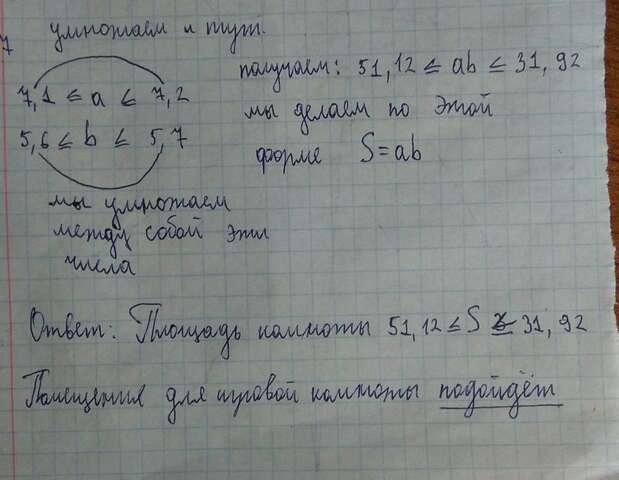 7 умножаем и тут.
7,1 ≤ a ≤ 7,2
5,6 ≤ b ≤ 5,7
мы умножаем
между собой эти
числа
получаем: 51,12 ≤ ab ≤ 31,92
мы делаем по этой
форме S=ab
Ответ: Площадь комноты 51,12 ≤ S ≤ 31,92
Помещения для игровой комноты подойдёт